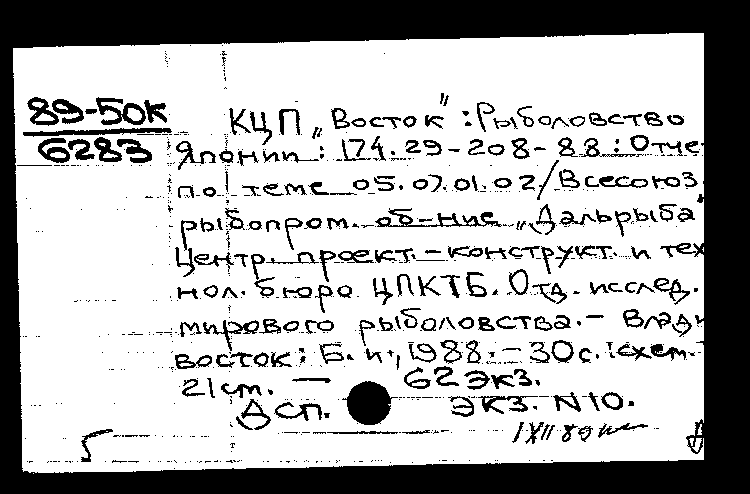 89-50К
6283
КЦП „Восток" : Рыболовство
Японии : 174.29-208-88 : Отче
по теме 05.07.01.02/Всесоюз.
рыбопром. об-ние „Дальрыба"
Центр. проект.-конструкт. и тех
нол. бюро ЦПКТБ. Отд. исслед.
мирового рыболовства.- Влади
восток: Б. и., 1988.-30с.:схем.
21 см. — 62 экз.
ДСП. экз. N10.